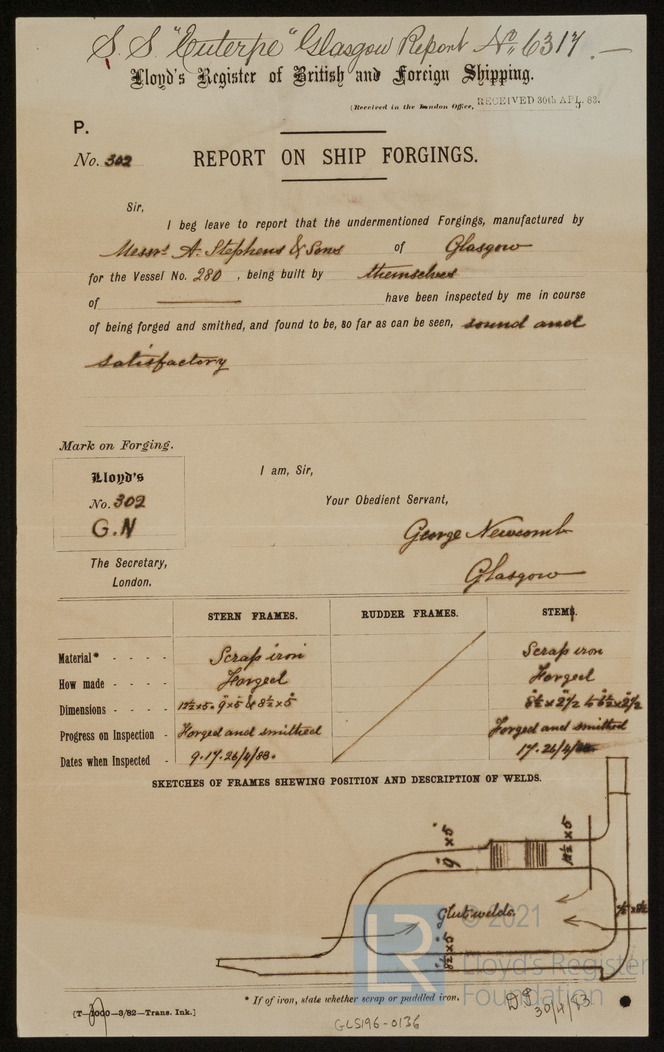 S. S. "Euterpe" Glasgow Report No. 6317.
Lloyd's Register of British and Foreign Shipping.
(Received in the London Office, RECEIVED 30th APL. 83.
P.
No. 302 REPORT ON SHIP FORGINGS.
Sir,
I beg leave to report that the undermentioned Forgings, manufactured by
Messrs A. Stephens & Sons of Glasgow
for the Vessel No. 280, being built by themselves
of ——— have been inspected by me in course
of being forged and smithed, and found to be, so far as can be seen, sound and
satisfactory
Mark on Forging.
Lloyd's
No. 302
G.N
I am, Sir,
Your Obedient Servant,
George Newcomb
Glasgow
The Secretary,
London.
STERN FRAMES. RUDDER FRAMES. STEMS.
Material* - - - - Scrap iron Scrap iron
How made - - - - Forged Forged
Dimensions - - - - 12½x5. 9x5 & 8½x5 8½ x 2½ to 6½ x 2½
Progress on Inspection - Forged and smithed Forged and smithed
Dates when Inspected - 9.17.26/4/83. 17.26/4/83
SKETCHES OF FRAMES SHEWING POSITION AND DESCRIPTION OF WELDS.
9 x 5
12½ x 5
Glut welds.
8½ x 5
© 2021
LR
Lloyd's Register
Foundation
* If of iron, state whether scrap or puddled iron.
30/4/83
[T—1000—3/82—Trans. Ink.]
GLS196-0136